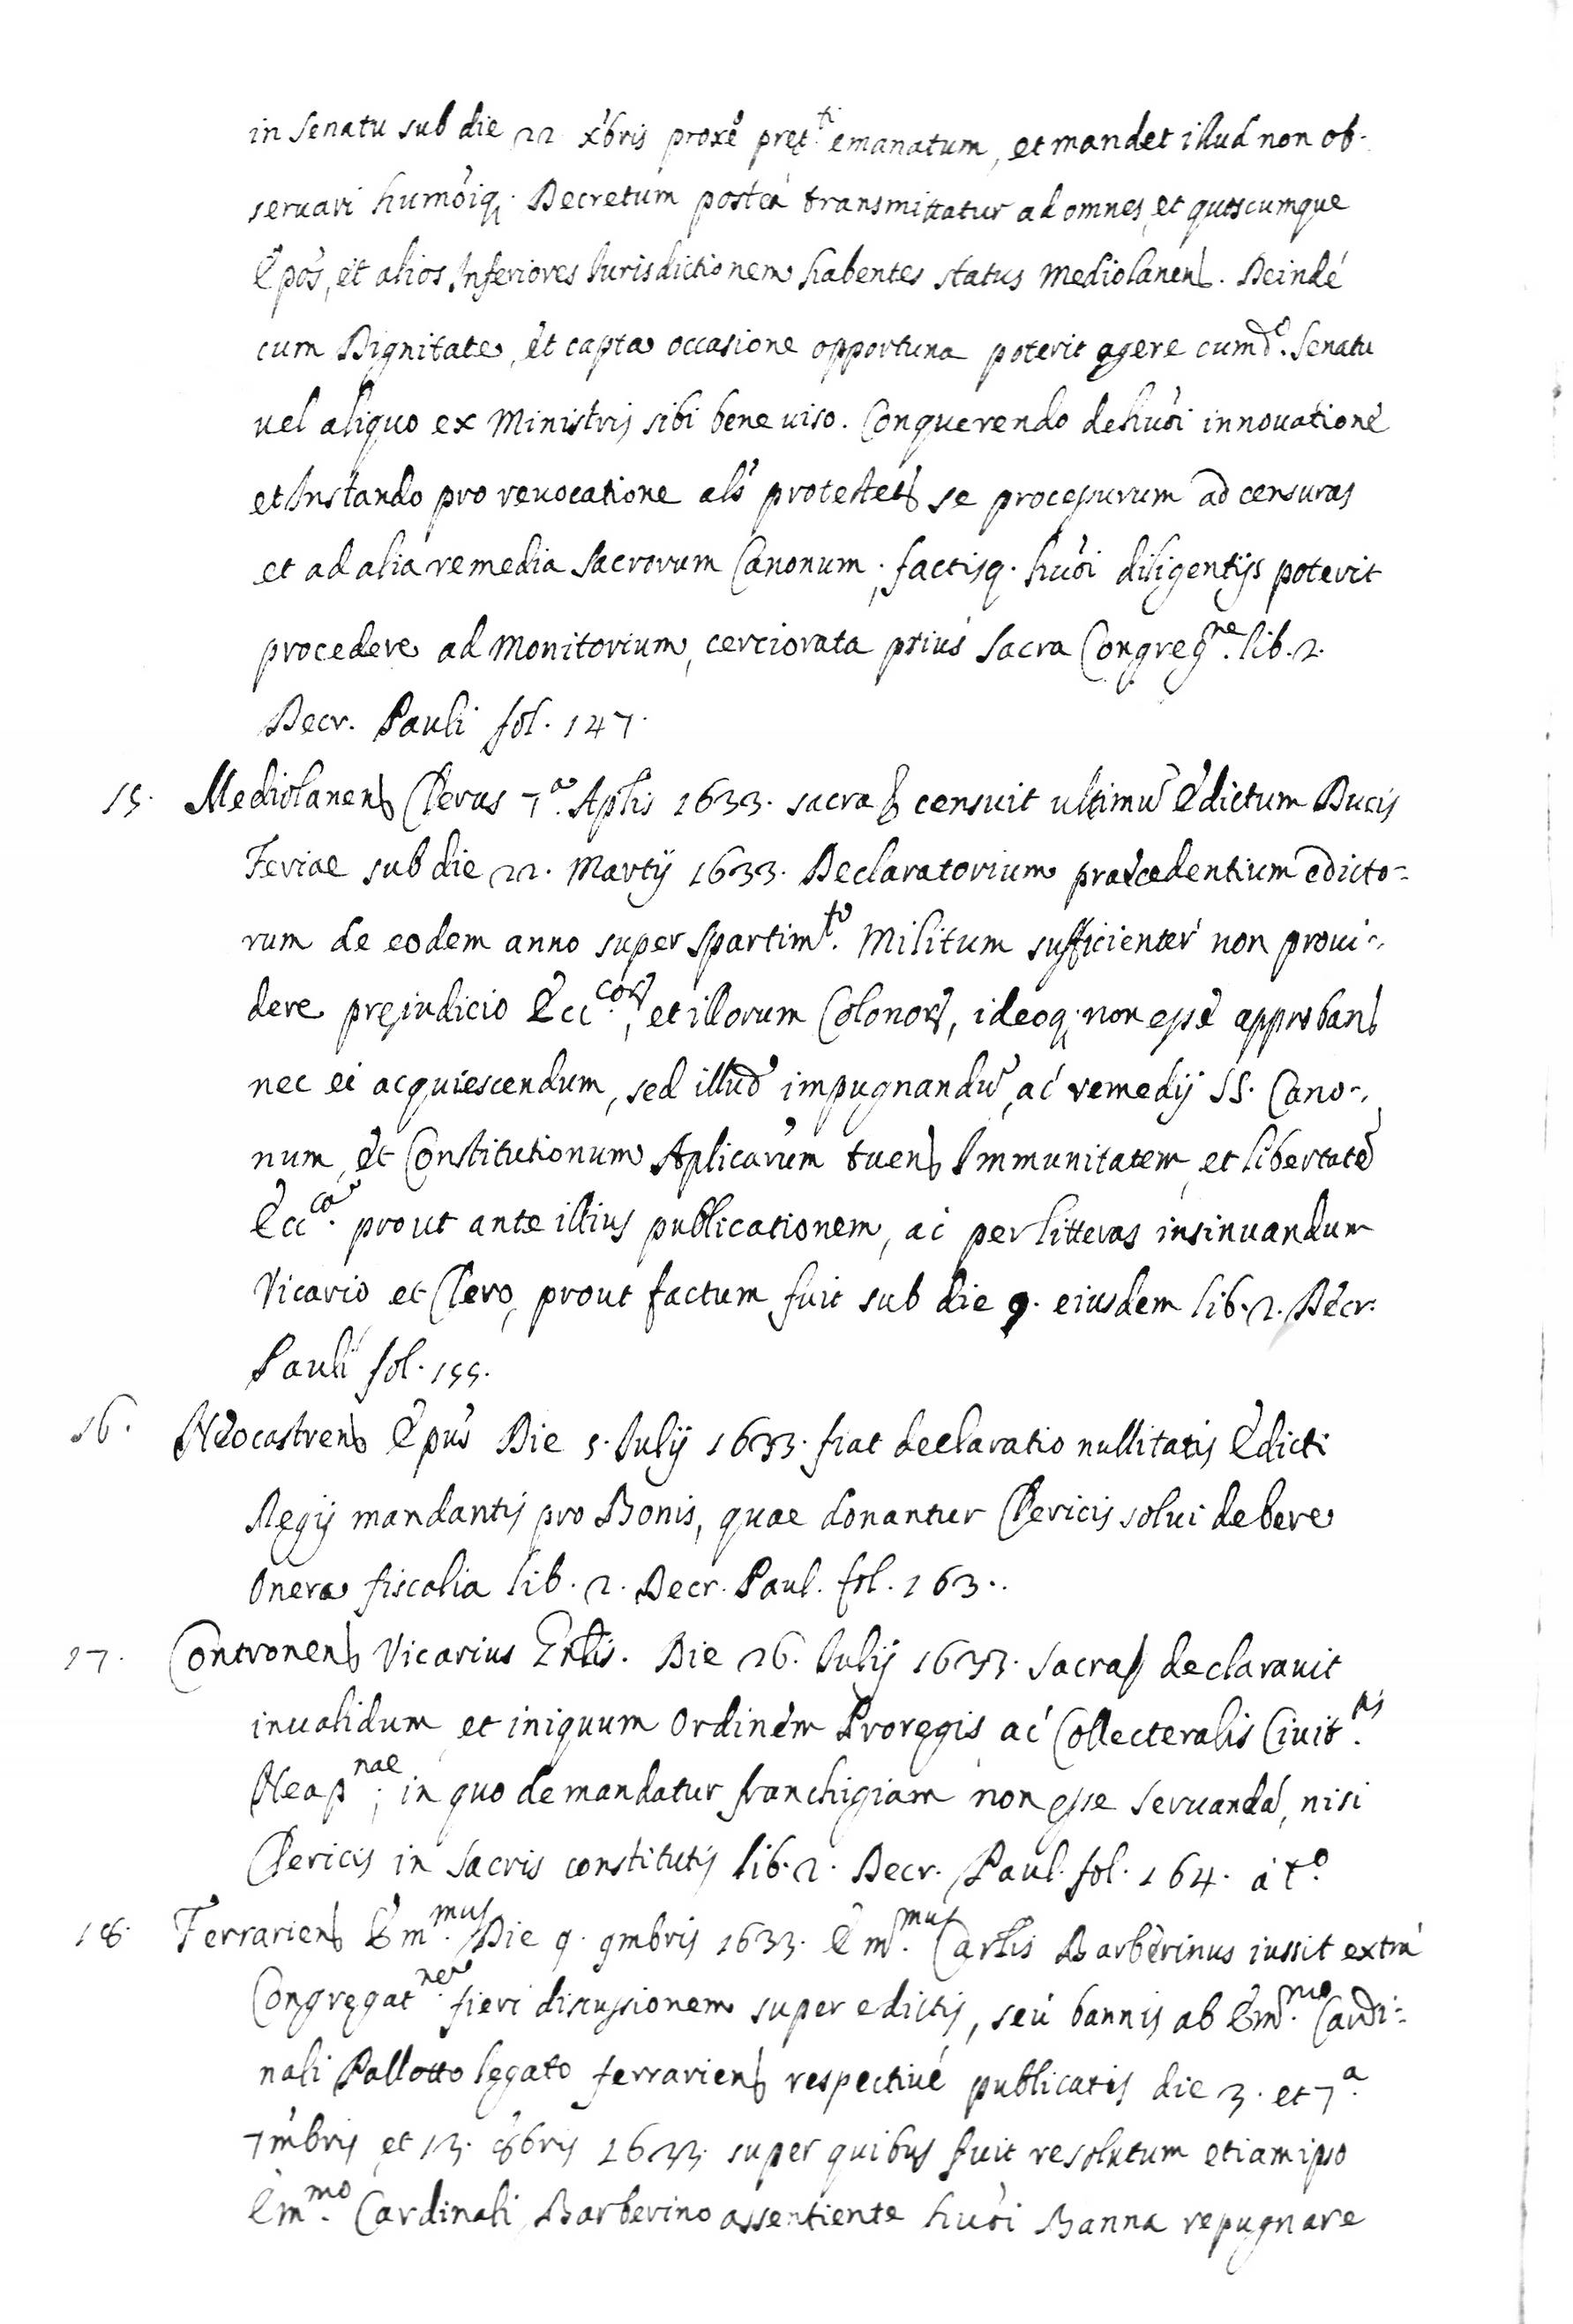 in Senatu sub die 22 xbris proxè pręt.ti emanatum, et mandet illud non ob-
seruari humõiq. Decretum posteà transmittatur ad omnes, et quoscumque
Epõs, et alios Inferiores Iurisdictionem habentes status Mediolanens. Deindé
cum Dignitate, et capta occasione opportuna poterit agere cum d.o Senatu
uel aliquo ex Ministris sibi bene uiso. Conquerendo de huõi innouationẽ
et Instando pro reuocatione als protestets se processurum ad censuras
et ad alia remedia Sacrorum Canonum; factisq. huõi diligentijs poterit
procedere ad Monitorium, cerciorata priùs Sacra Congreg.ne lib. 2.
Decr. Pauli fol. 147.
15. Mediolanens Clerus 7.a Aplis 1633. sacra censuit ultimũ Edictum Ducis
Feriae sub die 22. Martij 1633. Declaratorium praecedentium edicto-
rum de eodem anno super Spartim.to Militum sufficienter non proui-
dere pręiudicio Ecc.cor, et illorum Colonor, ideoq; non esse approbans
nec ei acquiescendum, sed illud impugnandũ, ac remedij SS. Cano-
num, et Constitutionum Aplicarum tuens Immunitatem, et libertatẽ
Ecc.ca prout ante illius publicationem, ac per litteras insinuandum
Vicario et Clero, prout factum fuit sub die 9. eiusdem lib. 2. Decr.
Pauli fol. 155.
16. Neocastrens Epũs Die 5. Iulij 1633. fiat declaratio nullitatis Edicti
Regij mandantis pro Bonis, quae donantur Clericis solui debere
Onera fiscalia lib. 2. Decr. Paul. fol. 163.
17. Contronens Vicarius Gnlis. Die 26. Iulij 1633. Sacra declarauit
inualidum et iniquum Ordinem Proregis ac Collecteralis Ciuit.tis
Neap.nae, in quo demandatur franchigiam non esse Seruandã, nisi
Clericis in Sacris constitutis lib. 2. Decr. Paul. fol. 164. à t.o
18. Ferrariens Em.mus Die 9. 9mbris 1633. Em.mus Carlis Barberinus iussit extrà
Congregat.nem fieri discussionem super edictis, seù bannis ab Em.mo Cardi-
nali Pallotto legato ferrariens respectiuè publicatis die 3. et 7.a
7mbris et 13. 8bris 1633. super quibus fuit resolutum etiam ipso
Em.mo Cardinali Barberino assentiente huõi Banna repugnare